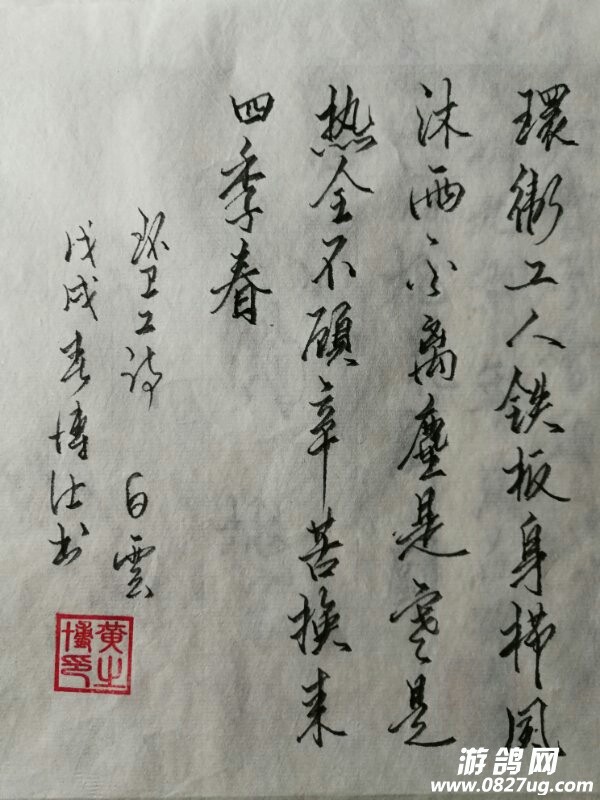 環衛工人鉄板身櫛風
沐雨不离塵是寒是
热全不顧辛苦换来
四季春
环卫工诗 白雲
戊戌春博仕书
黄博之印
游鸽网
www.0827ug.com